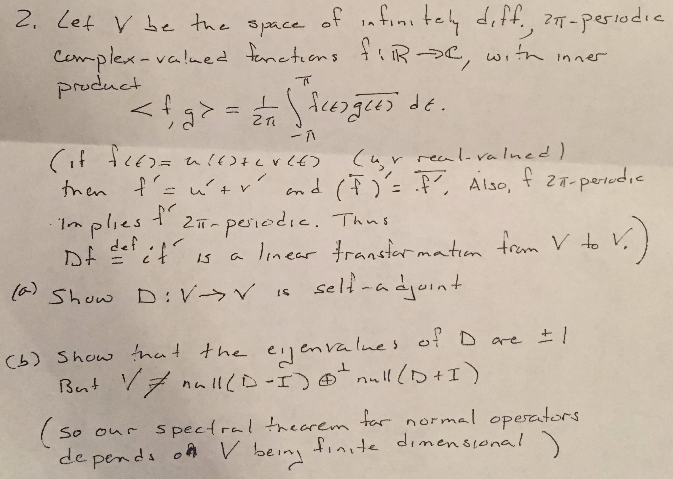 2. Let V be the space of infinitely diff., 2π-periodic
complex-valued functions f: ℝ → ℂ, with inner
product
<f,g> = 1/2π ∫_{-π}^{π} f(t) \overline{g(t)} dt.
(if f(t) = u(t) + i v(t) (u, v real-valued)
then f' = u' + v' and (\overline{f})' = \overline{f'}. Also, f 2π-periodic
implies f' 2π-periodic. Thus
Df \stackrel{def}{=} if' is a linear transformation from V to V.)
(a) Show D: V → V is self-adjoint
(b) Show that the eigenvalues of D are ±1
But V ≠ null(D-I) ⊕^⊥ null(D+I)
(so our spectral theorem for normal operators
depends on V being finite dimensional)